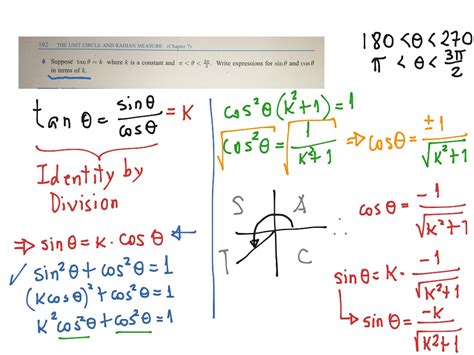 192 THE UNIT CIRCLE AND RADIAN MEASURE (Chapter 7)
6 Suppose tan θ = k where k is a constant and π < θ < 3π/2. Write expressions for sin θ and cos θ
in terms of k.
180 < θ < 270
π < θ < 3π/2
tan θ = sin θ / cos θ = K
Identity by
Division
⇒ sin θ = K · cos θ
✓ sin²θ + cos²θ = 1
(K cos θ)² + cos²θ = 1
K² cos²θ + cos²θ = 1
cos²θ (K² + 1) = 1
√cos²θ = √(1 / (K² + 1))
⇒ cos θ = ±1 / √(K² + 1)
S A
T C
∴
cos θ = -1 / √(K² + 1)
sin θ = K · -1 / √(K² + 1)
sin θ = -K / √(K² + 1)